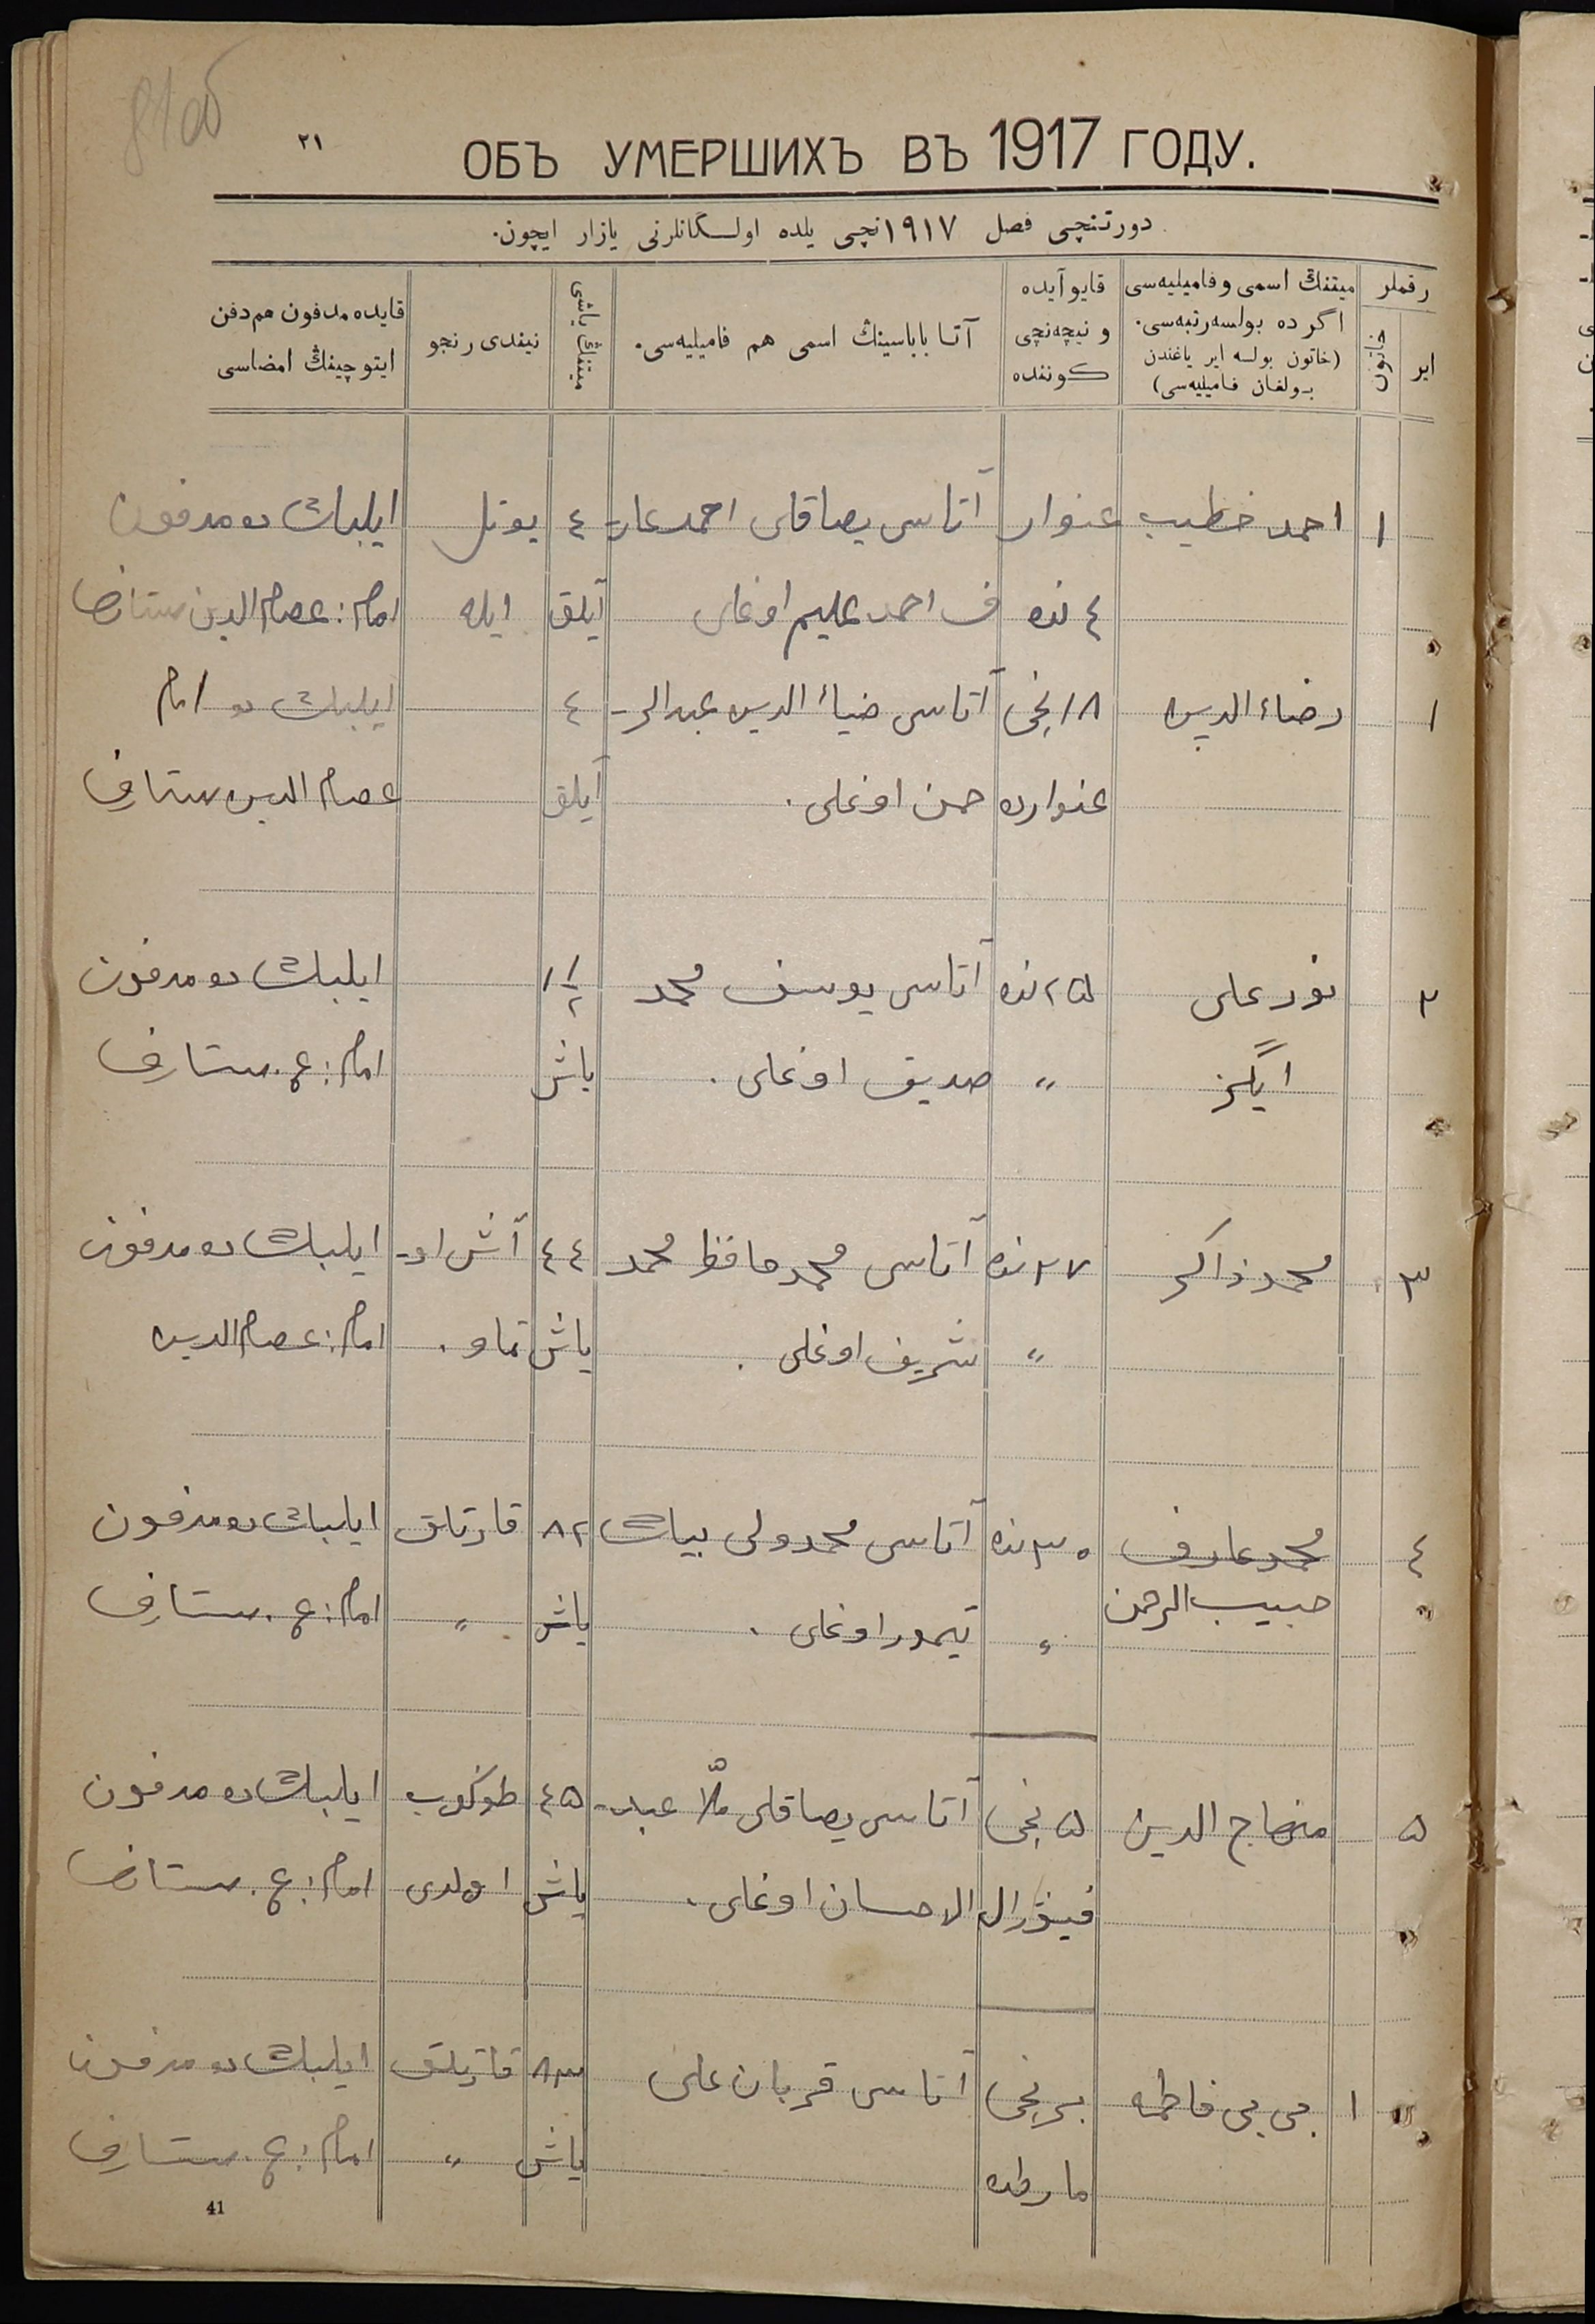 81об
٢١
ОБЪ УМЕРШИХЪ ВЪ 1917 ГОДУ.
دورتنچی فصل ١٩١٧نچی یلده اولـسگانلرنی یازار ایچون.
رقملر
ایر
خاتون
میتنڭ اسمی و فامیلیه‌سی
اگر ده بولسه رتبه‌سی.
(خاتون بولسه ایر یاغندن
بـولغان فامیلیه‌سی)
قایو آیده
و نیچه‌نچی
کوننده
آتـا باباسینڭ اسمی هم فامیلیه‌سی.
میتنڭ یاشی
نیندی رنجو
قایده مدفون هم دفن
ایتوچینڭ امضاسی
١ احمد خطیب عنوار آتاسی یصاقلی احمد عار- ٤ یوتل ایلباك ده مدفون
٤ نده ف احمد علیم اوغلی آیلق ایله امام: عصام الدین ستارف
١ رضاء الدین ١٨نجی آتاسی ضیاء الدین عبدالر- ٤ ایلبك ده امام
عنوارده حمن اوغلی. آیلق عصام الدین ستارف
٢ نور علی ٢٥نده آتاسی یوسف محمد ١ ١/٢ ایلبك ده مدفون
ایگز " صدیق اوغلی. یاش امام: ع. ستارف
٣ محمد ذاکر ٢٧نده آتاسی محمد حافظ محمد ٤٤ آش او- ایلبك ده مدفون
" شریف اوغلی. یاش تماو. امام: عصام الدین
٤ محمد عارف ٣٠نده آتاسی محمد ولی بیك ٨٢ قارتلق ایلبك ده مدفون
حبیب الرحمن " تیمور اوغلی. یاش " امام: ع. ستارف
٥ منهاج الدین ٥نجی آتاسی یصاقلی ملّا عبد- ٤٥ طوڭوب ایلبك ده مدفون
فیۋرال الاحسان اوغلی. یاش اولدی امام: ع. ستارف
١ بی بی فاطمه برنجی آتاسی قربان علی ٨٣ قارتلق ایلبك ده مدفون
مارطده یاش " امام: ع. ستارف
41